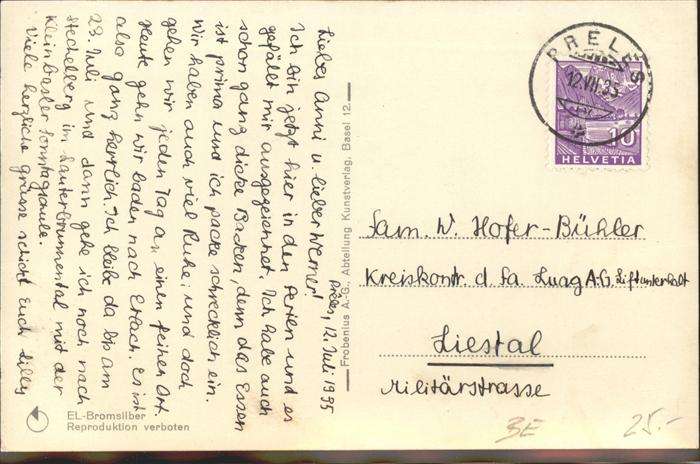 Prêles, 12. Juli 1935
Liebes Anni u. lieber Werner!
Ich bin jetzt hier in den Ferien und es
gefällt mir ausgezeichnet. Ich habe auch
schon ganz dicke Backen, denn das Essen
ist prima und ich packe schrecklich ein.
Wir haben auch viel Ruhe; und doch
gehen wir jeden Tag an einen feinen Ort.
Heute gehn wir baden nach Erlach. Es ist
also ganz herrlich. Ich bleibe da bis am
23. Juli und dann gehe ich noch nach
Stechelberg im Lauterbrunnental mit der
Kleinbasler Sonntagschule.
Viele herzliche Grüsse schickt Euch Lilly
EL-Bromsilber
Reproduktion verboten
Frobenius A.-G., Abteilung Kunstverlag, Basel 12.
PRÊLES
12.VII.35
10
HELVETIA
Fam. W. Hofer-Bühler
Kreiskontr. d. Fa. Luag A.G. Liftunterhalt
Liestal
Militärstrasse
BE
25.-